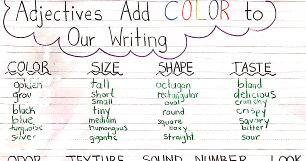 Adjectives Add COLOR to
Our Writing
COLOR SIZE SHAPE TASTE
golden tall octagon bland
gray short rectangular delicious
small oval crunchy
black tiny round crispy
blue medium square savory
turquoise humongous boxy bitter
silver gigantic straight sour
ODOR TEXTURE SOUND NUMBER